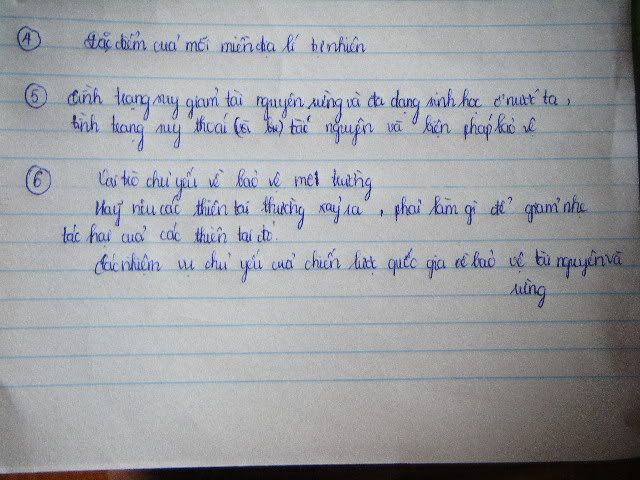 ④ Đặc điểm của mỗi miền địa lí tự nhiên
⑤ Tình trạng suy giảm tài nguyên rừng và đa dạng sinh học ở nước ta,
tình trạng suy thoái tài nguyên và biện pháp bảo vệ
⑥ Vai trò chủ yếu về bảo vệ môi trường
Hãy nêu các thiên tai thường xảy ra, phải làm gì để giảm nhẹ
tác hại của các thiên tai đó.
Các nhiệm vụ chủ yếu của chiến lược quốc gia về bảo vệ tài nguyên và
rừng